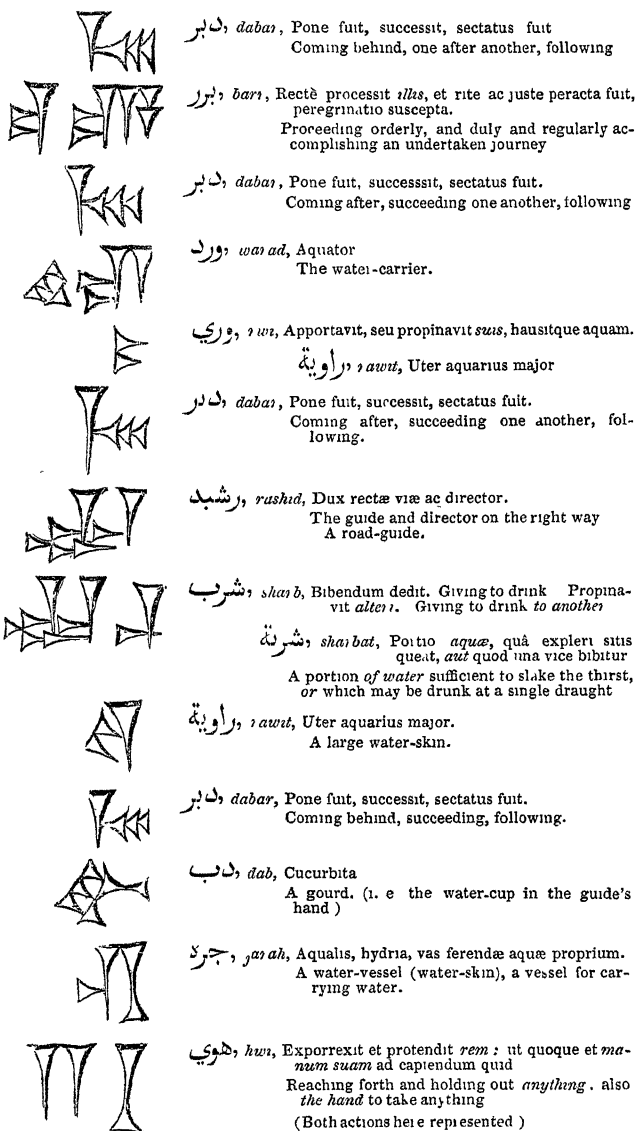 دبر, dabar, Pone fuit, successit, sectatus fuit
Coming behind, one after another, following
برر, bari, Rectè processit illis, et rite ac juste peracta fuit,
peregrinatio suscepta.
Proceeding orderly, and duly and regularly ac-
complishing an undertaken journey
دبر, dabar, Pone fuit, successsit, sectatus fuit.
Coming after, succeeding one another, following
ورد, warad, Aquator
The water-carrier.
وري, rwi, Apportavit, seu propinavit suis, hausitque aquam.
راوية, rawit, Uter aquarius major
دبر, dabar, Pone fuit, successit, sectatus fuit.
Coming after, succeeding one another, fol-
lowing.
رشيد, rashid, Dux rectæ viæ ac director.
The guide and director on the right way
A road-guide.
شرب, sharb, Bibendum dedit. Giving to drink Propina-
vit alteri. Giving to drink to another
شربة, sharbat, Portio aquæ, quâ expleri sitis
queat, aut quod una vice bibitur
A portion of water sufficient to slake the thirst,
or which may be drunk at a single draught
راوية, rawit, Uter aquarius major.
A large water-skin.
دبر, dabar, Pone fuit, successit, sectatus fuit.
Coming behind, succeeding, following.
دب, dab, Cucurbita
A gourd. (i. e the water-cup in the guide's
hand )
جره, jarah, Aqualis, hydria, vas ferendæ aquæ proprium.
A water-vessel (water-skin), a vessel for car-
rying water.
هوي, hwi, Exporrexit et protendit rem : ut quoque et ma-
num suam ad capiendum quid
Reaching forth and holding out anything . also
the hand to take anything
(Both actions here represented )